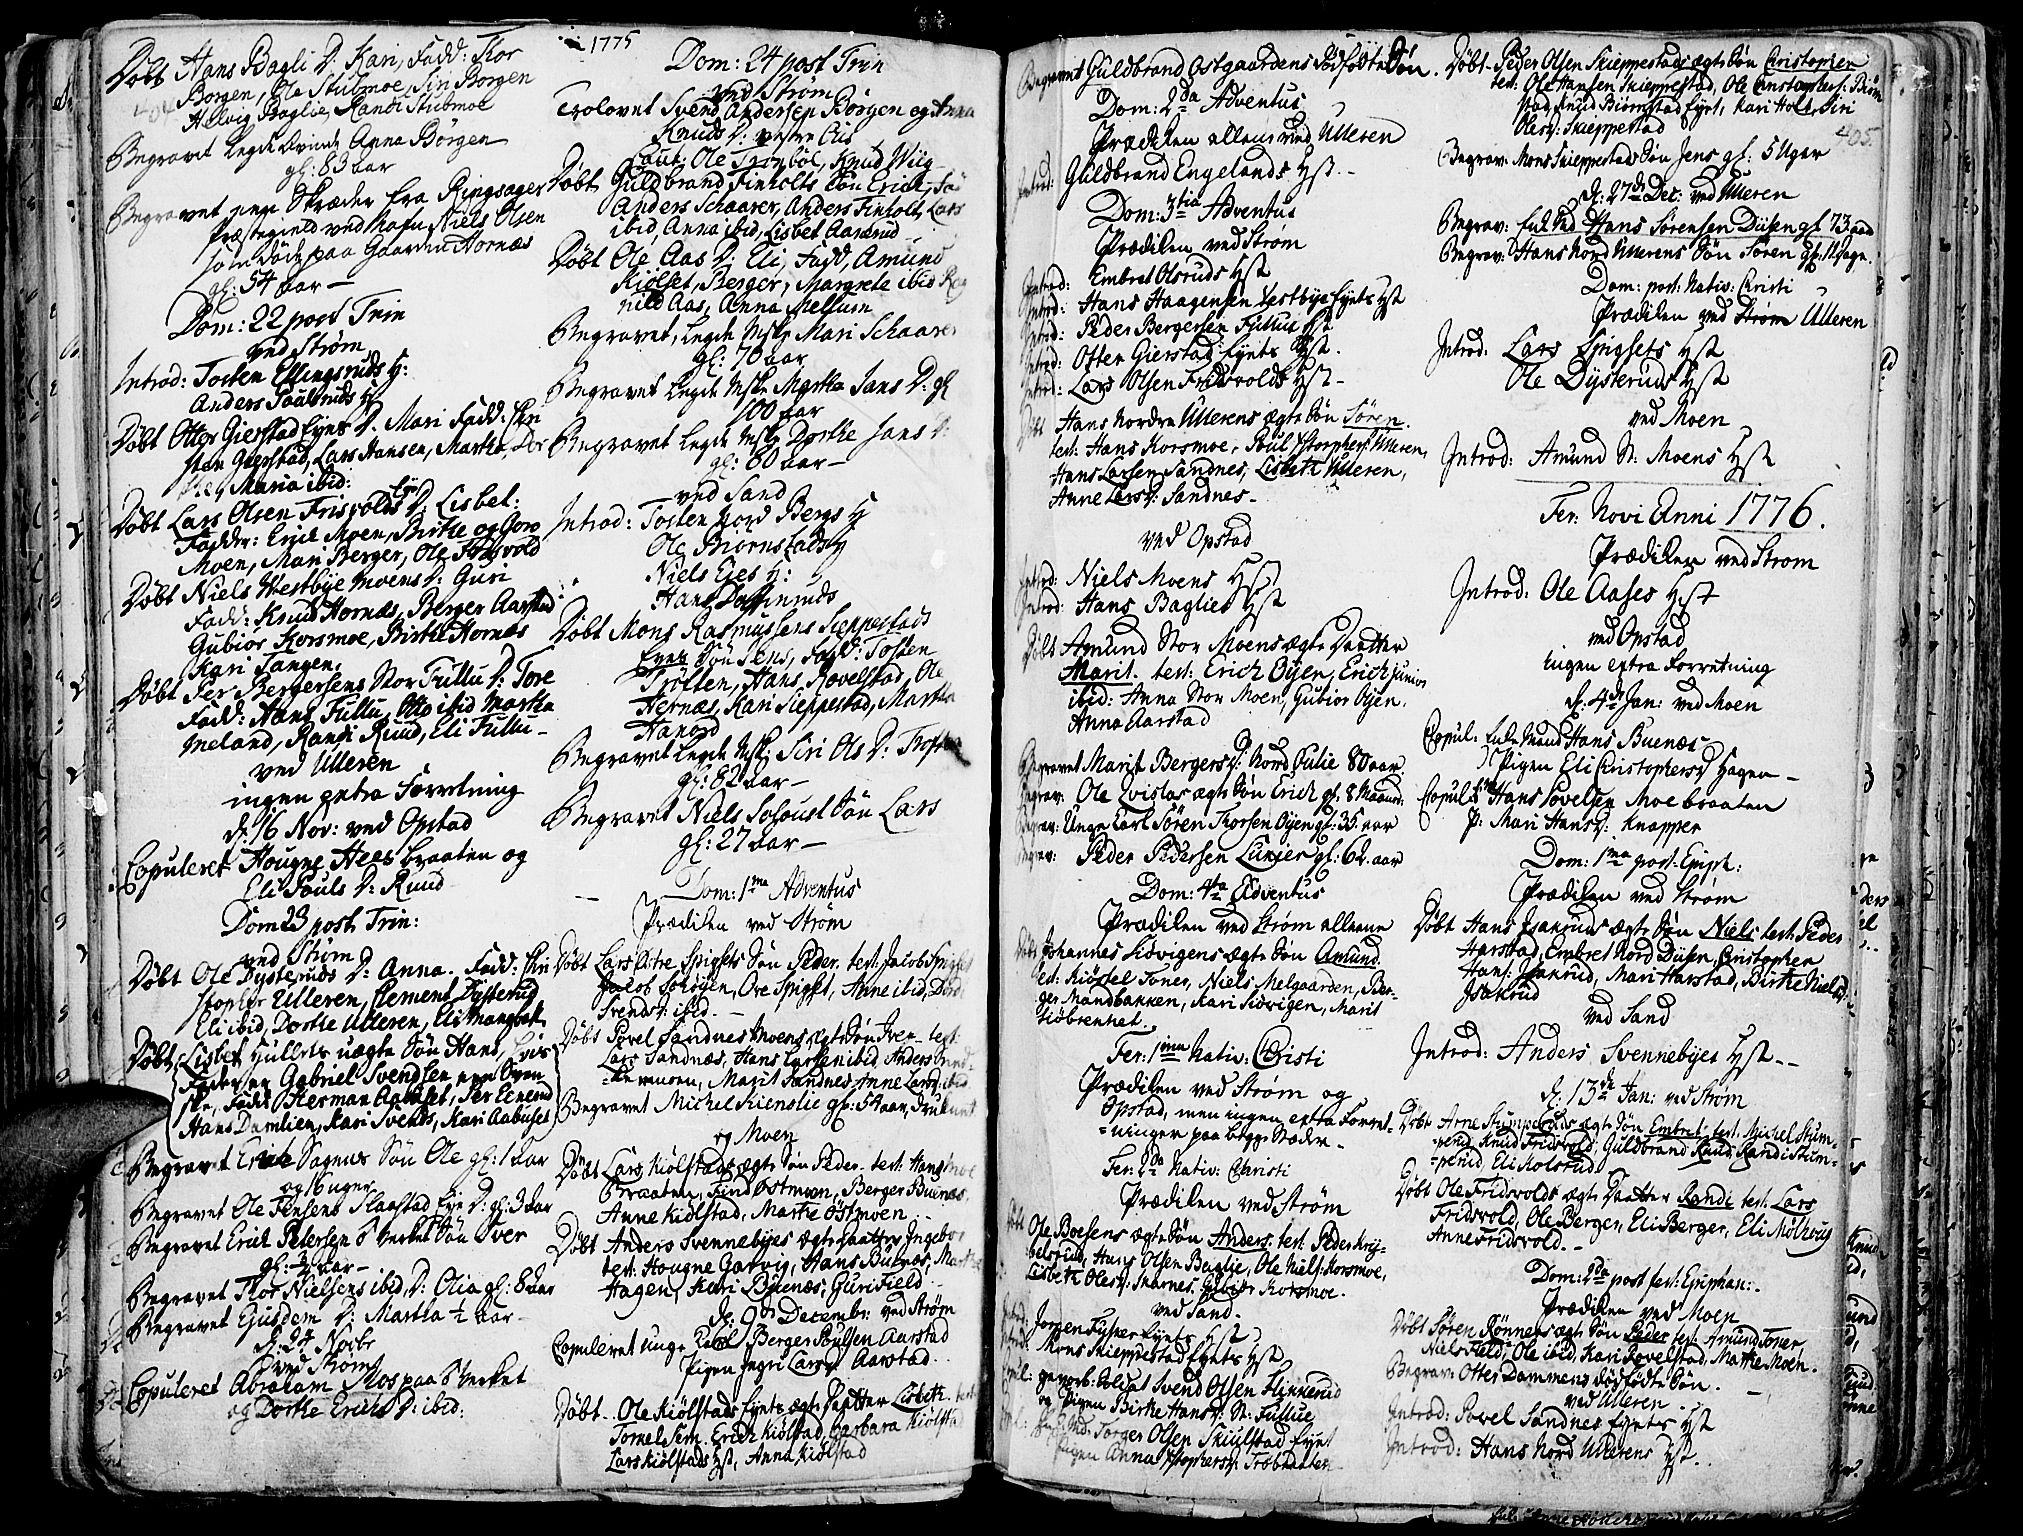 1775
Døbt Hans Bagli D. Kari, Fadd: Thor
Borgen, Ole Stubmoe, Siri Borgen
Helvig Baglie, Randi Stubmoe
Begravet Legds Qvinde Anna Börgen
gl: 83 aar
Begravet en Skræder fra Ringsager
Præstegield ved Nafn Niels Olsen
som døde paa Gaarden Hornæs
gl: 54 aar —
Dom: 22 post Trin
ved Strøm
Introd: Tosten Ellingsruds H:
Anders Paalsruds H
Døbt Otter Gierstad Eyes D. Mari Fadd:
Gierstad, Lars Hansen, Martha
Maria ibid:
Døbt Lars Olsen Frisvolds Eye D: Lisbet:
Faddr: Erik Moen, Birthe og Goro
Moen, Mari Berger, Ole Frisvold
Døbt Niels Westbye Moens D: Guri
Fadd: Knud Hornæs, Berger Aarstad
Gubiør Korsmoe, Birthe Hornæs
Kari Tangen.
Døbt Per Bergersens Stor Fullu D: Tore
Fadd: Hans Fullu, Otto ibid Martha
Meland, Randi Ruud, Eli Fullu —
ved Ulleren
ingen extra Forretning
d: 16 Nov: ved Opstad
Copuleret Hougne Heesbraaten og
Eli Pouls D: Ruud
Dom 23 post Trin:
ved Strøm
Døbt Ole Dysteruds D: Anna. Fadd:
Ulleren, Clement Dysterud
Eli ibid, Dorthe Ulleren, Eli Mangset
Døbt Lisbet Hullets uægte Søn Hans,
Fader er Gabriel Svendsen
Fadd: Herman Aabuset, Per
Hans Damlien, Kari Svends, Kari Aabuset
Begravet Erik Sagnes Søn Ole gl: 1 aar
og 16 uger
Begravet Ole Jensens Slaastad Eye D: gl: 3 aar
Begravet Erich Petersen O Verket Søn Iver
gl: ½ aar —
Begravet Thor Nielsens ibid D: Olia gl: 8 aar
Begravet Ejusdem D: Martha ½ aar —
d: 24 Novbr
ved Strøm
Copuleret Abraham Mos paa O Verket
og Dorthe Erichs D: ibid:
Dom: 24 post Trin
ved Strøm
Trolovet Svend Andersen Börgen og Anna
Knuds D: vestre
Caut: Ole Trønböl, Knud Wiig
Døbt Guldbrand Finholts Søn Erich,
Anders Schaarer, Anders Finholt, Lars
ibid, Anna ibid, Lisbet Aamrud
Døbt Ole Aas D: Eli, Fadd, Amund
Kiölset, Berger, Margrete ibid
Aas, Anna Mellum
Begravet, Legds Mske Mari Schaarer
gl: 70 aar
Begravet Legds Mske Martha Jans D: gl
100 aar
Begravet Legds Mske Dorthe Jans D:
gl: 80 aar —
ved Sand
Introd: Tosten Nord Bergs H
Ole Biörnstads H
Niels Ejes H:
Hans
Døbt Mons Rasmussens Skieppestads
Eyes Søn Jens, Fadd: Tosten
Trolten, Hans Rovelstad, Ole
Hernes, Kari Skieppestad, Martha
Hanord
Begravet Legds Mske Siri Ols D:
gl: 82 aar —
Begravet Niels Søn Lars
gl: 27 aar —
Dom: 1ma Adventus
Prædiken ved Strøm
Døbt Lars Østre Spigsets Søn Peder. test: Jacob Spigset
Jacob Schøyen, Ove Spigset, Anne ibid,
Svendsd: ibid.
Døbt Povel Sandnes Moens ægte Søn Iver. test:
Lars Sandnæs, Hans Larsen ibid, Anders
Marit Sandnes, Anne Larsd: ibid.
Begravet Michel Kienslie gl: 54 aar,
og Moen
Døbt Lars Kiölstads ægte Søn Peder. test: Hans Moe
Braaten, Find Østmoen, Berger Buenes,
Anne Kiölstad, Marthe Østmoen
Døbt Anders Svennebyes ægte Daatter Ingebor
test: Hougne Garvig, Hans Büenæs,
Hagen, Kari Büenæs, Guri Field
d: 9de Decembr: ved Strøm
Copuleret unge Karl Berger Poulsen Aarstad
Pigen Ingri Larsd: Aarstad
Døbt. Ole Kiölstads Eyets ægte Daatter Lisbeth. test:
Tomel Sem. Erich Kiölstad, Barbara Kiölsta
Lars Kiölstads Hst, Anna Kiølstad
Begravet Guldbrand Ostgaardens dødfødte Søn.
Dom: 2da Adventus
Prædiken allene ved Ulleren
Introd: Guldbrand Engelands Hst.
Dom: 3tia Adventus
Prædiken ved Strøm
Introd: Embret Olsruds Hst
Introd: Hans Haagensen Testbye Eyets Hst
Introd: Peder Bergersen Fullus Hst
Introd: Otter Gierstad Eyets Hst.
Introd: Lars Olsen Fridsvolds Hst —
Døbt Hans Nordre Ullerens ægte Søn Søren.
test: Hans Korsmoe, Poul Stophers: Ulleren,
Hans Larsen Sandnes, Lisbeth Ulleren,
Anne Larsd: Sandnes —
ved Opstad
Introd: Niels Moens Hst
Introd: Hans Baglies Hst
Døbt Amund Stor Moens ægte Daatter
Marit. test: Erich Öyen, Erich junior
ibid: Anna Stor Moen, Gubiør Öyen,
Anna Aarstad
Begravet Marit Bergersd: Nord Fulie 80 aar
Begrav: Ole Qvislars ægte Søn Erich gl: 8 Maaned:
Begrav: Unge Karl Søren Thorsen Öyen gl: 35. aar
Begrav: Peder Pedersen Lunier gl: 62. aar
Dom: 4ta Adventus
Prædiken ved Strøm allene
Døbt Johannes Sidvigens ægte Søn Amund.
test: Kiöstel Toner, Niels Melgaarden,
Mandbakken, Kari Sidvigen, Marit
Siöbrenhet.
Fer: 1ma Nativ: Christi
Prædiken ved Strøm og
Opstad, men ingen extra Forret-
ninger paa begge Stæder —
Fer: 2da Nativ: Christi
Prædiken ved Strøm
Døbt Ole Boesens ægte Søn Anders. test: Peder Kny-
belsrud, Hans Olsen Baglie, Ole Niels: Korsmoe,
Lisbeth Olesd: Skarnes, Gubiør Korsmoe.
ved Sand.
Introd: Jørgen Fusker Eyets Hst
Introd: Mons Skieppestad Eyets Hst
Copul: gevorb: Soldat Svend Olsen Slinkerud
og Pigen Birthe Hansd: St: Fullue
Copul: Torger Olsen Skiulstad Eyet
Pigen Anna Stophersd: Træbraaten
405.
Døbt. Peder Olsen Skieppestads ægte Søn Christopher
test: Ole Hansen Skieppestad, Ole Christophers:
Knud Biörnstad Eyet, Kari Holter, Siri
Olesd: Skieppestad
Begrav: Mons Skieppestads Søn Jens gl: 5 Uger
d: 27de Dec: ved Ulleren
Begrav: Enkemd Hans Sørensen Dysen gl 73 aar
Begrav: Hans Nord Ullerens Søn Søren gl: 11 dage.
Dom: post: Nativ: Christi
Prædiken ved Strøm Ulleren
Introd. Lars Spigsets Hst
Ole Dysteruds Hst
ved Moen
Introd: Amund St: Moens Hst
Fer: Novi Anni 1776.
Prædiken ved Strøm
Introd: Ole Aases Hst
ved Opstad
ingen extra Forretning
d. 4de Jan: ved Moen
Copul: Enkemand Hans Buenæs
Pigen Eli Christophersd Hagen —
Copul: Hans Povelsen Moebraaten
P: Mari Hansd: Knapper
Dom: 1ma post. Epiph:
Prædiken ved Strøm
Døbt Hans Isakruds ægte Søn Niels test: Peder
Harstad, Embret Nord Düsen, Christopher
Hans: Isakrud, Mari Harstad, Birthe Nielsd:
Isakrud
ved Sand
Introd: Anders Svennebyes Hst —
d. 13de Jan: ved Strøm
Døbt Arne Stumperuds ægte Søn Embret. test: Michel Stum-
perud, Knud Fridsvold, Guldbrand Ruud, Randi Stum-
perud, Eli Kolstrud
Døbt Ole Fridsvolds ægte Daatter Randi test: Lars
Fridsvold, Ole Berger, Eli Berger, Eli Molhoug
Anne Fridsvold. —
Dom: 2da post fest: Epiphan: —
Prædiken ved Moen
Døbt Søren Rönners ægte Søn Peder test: Amund Toner,
Niels Field, Ole ibid, Kari Rovelstad, Marthe Moen.
Begrav: Otter Dammens dødfødte Søn.
ved Ulleren
Introd: Povel Sandnes Eyets Hst
Introd: Hans Nord Ullerens Hst.